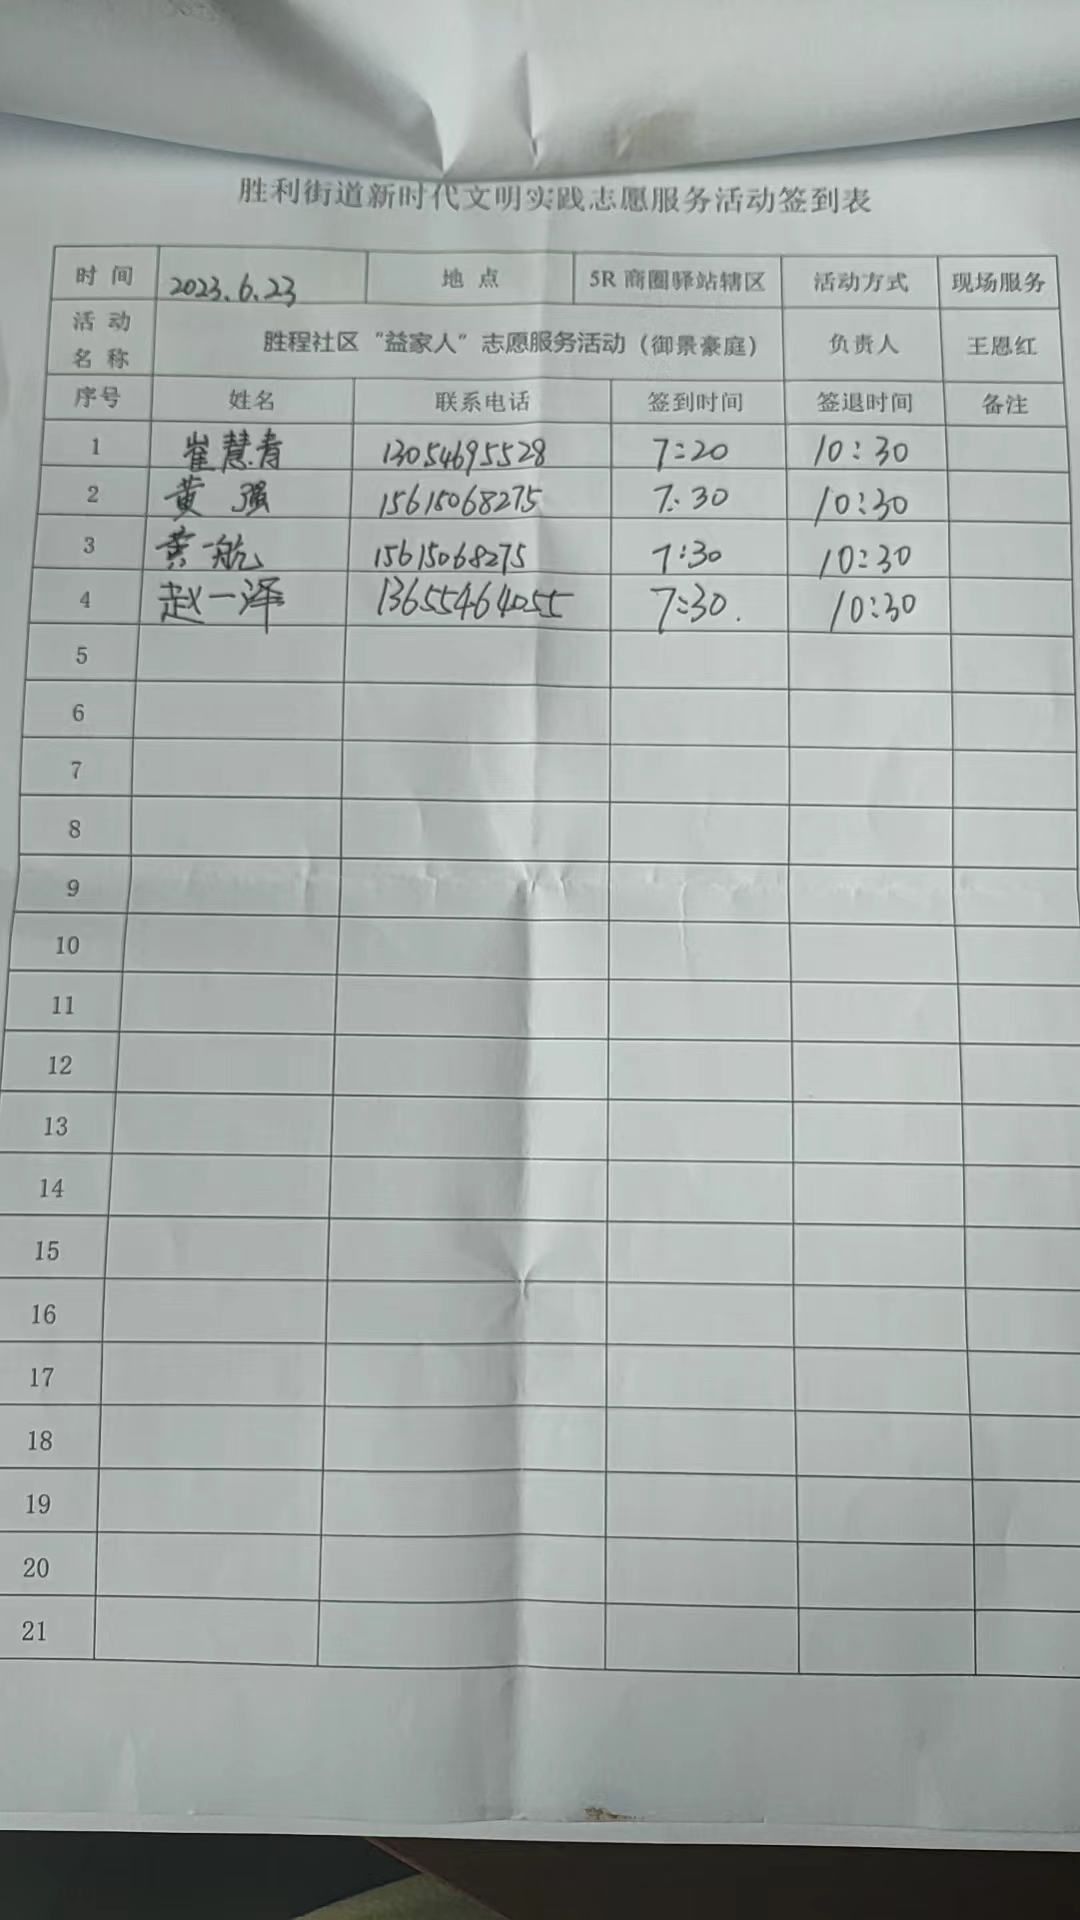 胜利街道新时代文明实践志愿服务活动签到表
时 间 2023.6.23 地 点 5R 商圈驿站辖区 活动方式 现场服务
活 动 名 称 胜程社区“益家人”志愿服务活动（御景豪庭） 负责人 王恩红
序号 姓名 联系电话 签到时间 签退时间 备注
1 崔慧青 13054695528 7:20 10:30
2 黄强 15615068275 7:30 10:30
3 黄一航 15615068275 7:30 10:30
4 赵一泽 13655464055 7:30. 10:30
5
6
7
8
9
10
11
12
13
14
15
16
17
18
19
20
21